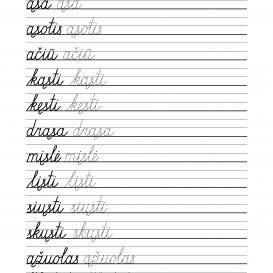 ąsa ąsa
ąsotis ąsotis
ačiū ačiū
kąsti kąsti
kęsti kęsti
drąsa drąsa
mįslė mįslė
lįsti lįsti
siųsti siųsti
skųsti skųsti
ąžuolas ąžuolas